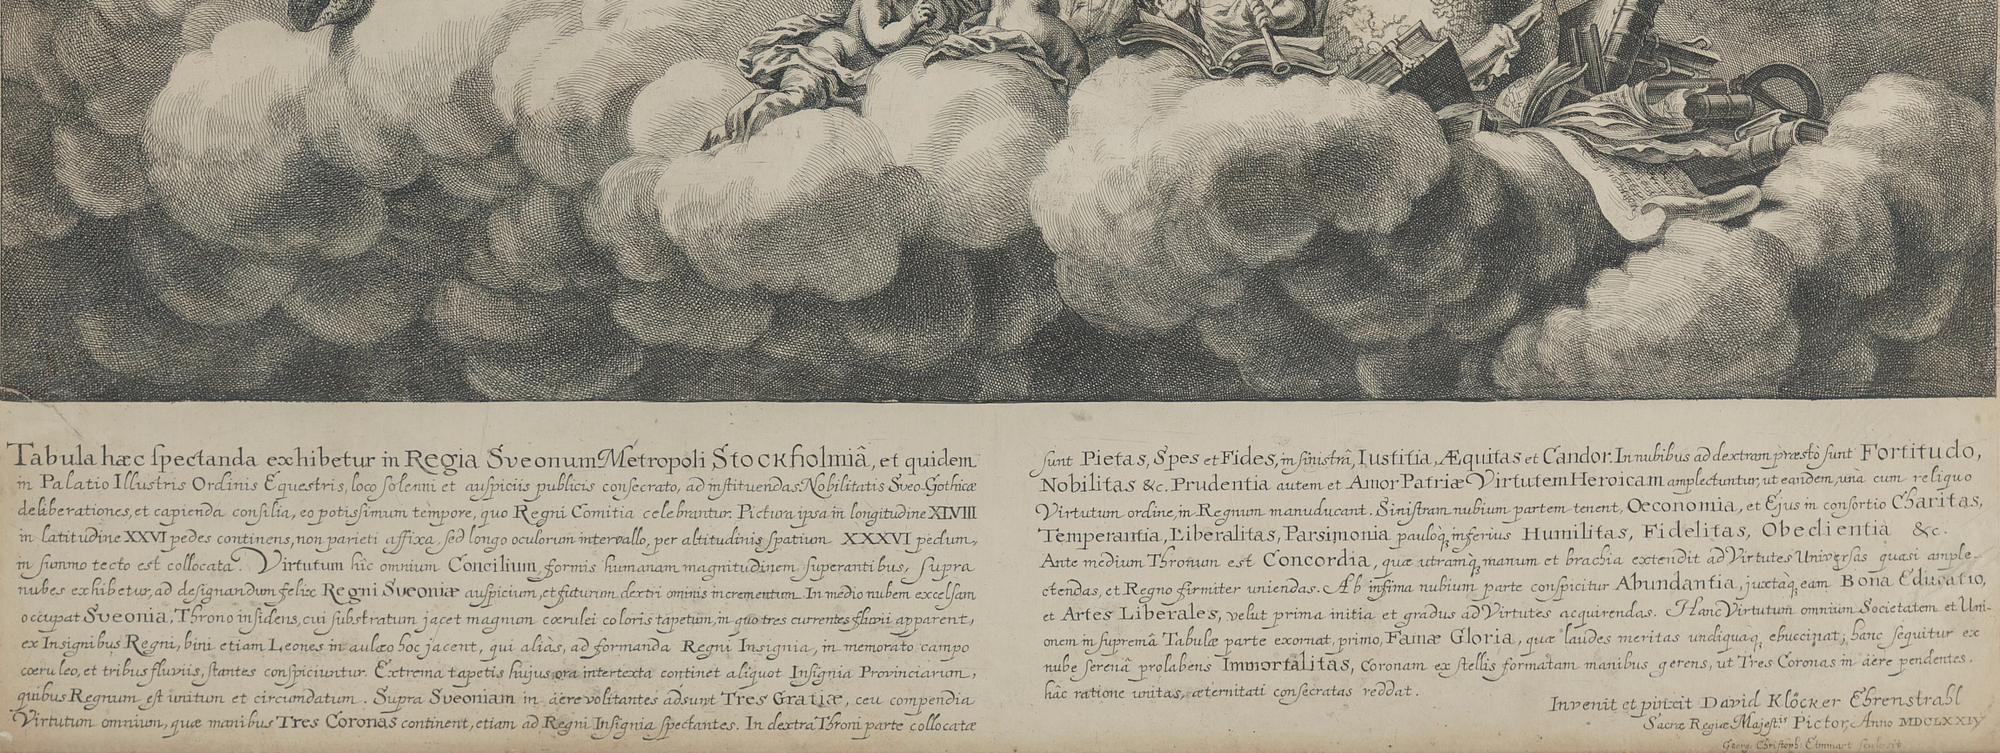 Tabula hæc spectanda exhibetur in Regia Sveonum Metropoli Stockholmiâ, et quidem
in Palatio Illustris Ordinis Equestris, loco solenni et auspiciis publicis consecrato, ad instituendas Nobilitatis Sveo-Gothicæ
deliberationes, et capienda consilia, eo potissimum tempore, quo Regni Comitia celebrantur. Pictura ipsa in longitudine XLVIII
in latitudine XXVI pedes continens, non parieti affixa, sed longo oculorum intervallo, per altitudinis spatium XXXVI pedum,
in summo tecto est collocata. Virtutum hîc omnium Concilium, formis humanam magnitudinem superantibus, supra
nubes exhibetur, ad designandum felix Regni Sveoniæ auspicium, et futurum dextri ominis incrementum. In medio nubem excelsam
occupat Sveonia, Throno insidens, cui substratum jacet magnum cœrulei coloris tapetum, in quo tres currentes fluvii apparent,
ex Insignibus Regni, bini etiam Leones in aulæo hoc jacent, qui aliàs, ad formanda Regni Insignia, in memorato campo
cœruleo, et tribus fluviis, stantes conspiciuntur. Extrema tapetis hujus ora intertexta continet aliquot Insignia Provinciarum,
quibus Regnum est unitum et circumdatum. Supra Sveoniam in äere volitantes adsunt Tres Gratiæ, ceu compendia
Virtutum omnium, quæ manibus Tres Coronas continent, etiam ad Regni Insignia spectantes. In dextra Throni parte collocatæ
sunt Pietas, Spes et Fides, in sinistrâ, Iustitia, Æquitas et Candor. In nubibus ad dextram præstò sunt Fortitudo,
Nobilitas &c. Prudentia autem et Amor Patriæ Virtutem Heroicam amplectuntur, ut eandem, unà cum reliquo
Virtutum ordine, in Regnum manuducant. Sinistram nubium partem tenent, Oeconomia, et Ejus in consortio Charitas,
Temperantia, Liberalitas, Parsimonia pauloq, inferius Humilitas, Fidelitas, Obedientia &c.
Ante medium Thronum est Concordia, quæ utramq, manum et brachia extendit ad Virtutes Universas quasi ample-
ctendas, et Regno firmiter uniendas. Ab infima nubium parte conspicitur Abundantia, juxtaq, eam Bona Educatio,
et Artes Liberales, velut prima initia et gradus ad Virtutes acquirendas. Hanc Virtutum omnium Societatem et Uni-
onem in supremâ Tabulæ parte exornat, primo, Famæ Gloria, quæ laudes meritas undiquaq, ebuccinat; hanc sequitur ex
nube serenâ prolabens Immortalitas, Coronam ex stellis formatam manibus gerens, ut Tres Coronas in äere pendentes,
hâc ratione unitas, æternitati consecratas reddat.
Invenit et pinxit David Klöcker Ehrenstrahl
Sacræ Regiæ Majestis Pictor, Anno MDCLXXIV
Georg. Christoph. Eimmart sculpsit